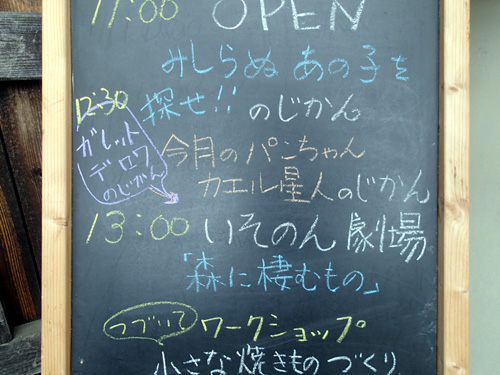 11:00 OPEN
みしらぬ あの子を
12:30 探せ!! のじかん
ガレット
デ・ロワ
のじかん
今月のパンちゃん
カエル星人のじかん
13:00 いそのん 劇場
「森に棲むもの」
つづいて ワークショップ
小さな焼きものづくり